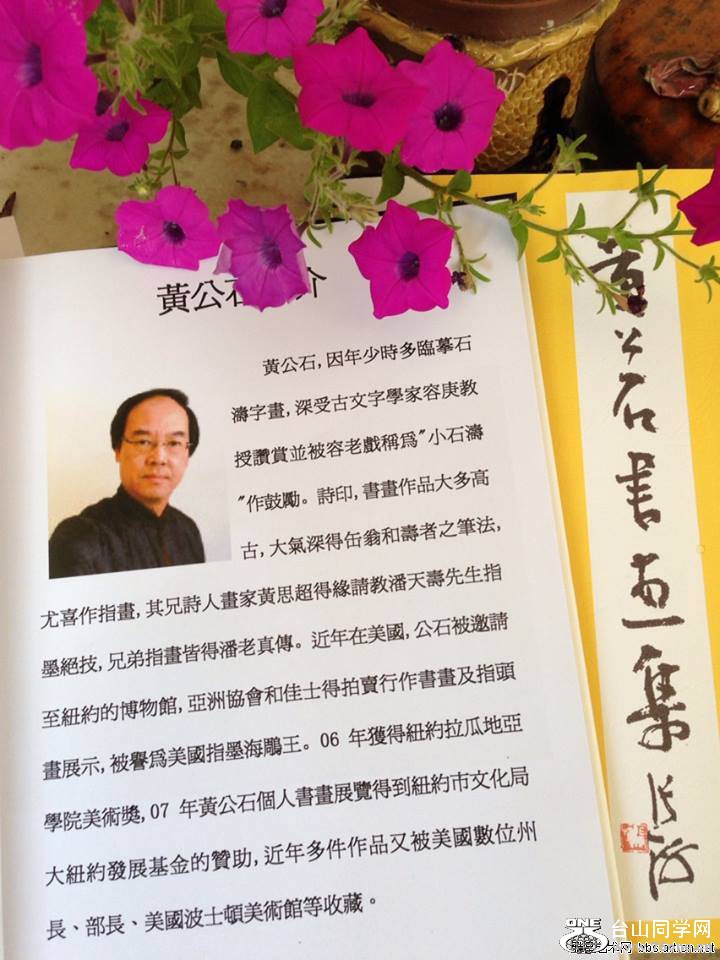 黃公石 介
黃公石,因年少時多臨摹石
濤字畫,深受古文字學家容庚教
授讚賞並被容老戲稱爲"小石濤
"作鼓勵。詩印,書畫作品大多高
古,大氣深得缶翁和壽者之筆法,
尤喜作指畫,其兄詩人畫家黃思超得緣請教潘天壽先生指
墨絕技,兄弟指畫皆得潘老真傳。近年在美國,公石被邀請
至紐約的博物館,亞洲協會和佳士得拍賣行作書畫及指頭
畫展示,被譽爲美國指墨海鵰王。06 年獲得紐約拉瓜地亞
學院美術獎,07 年黃公石個人書畫展覽得到紐約市文化局
大紐約發展基金的贊助,近年多件作品又被美國數位州
長、部長、美國波士頓美術館等收藏。
黃公石书画集
ONE
台山同学网
bbs.artron.net